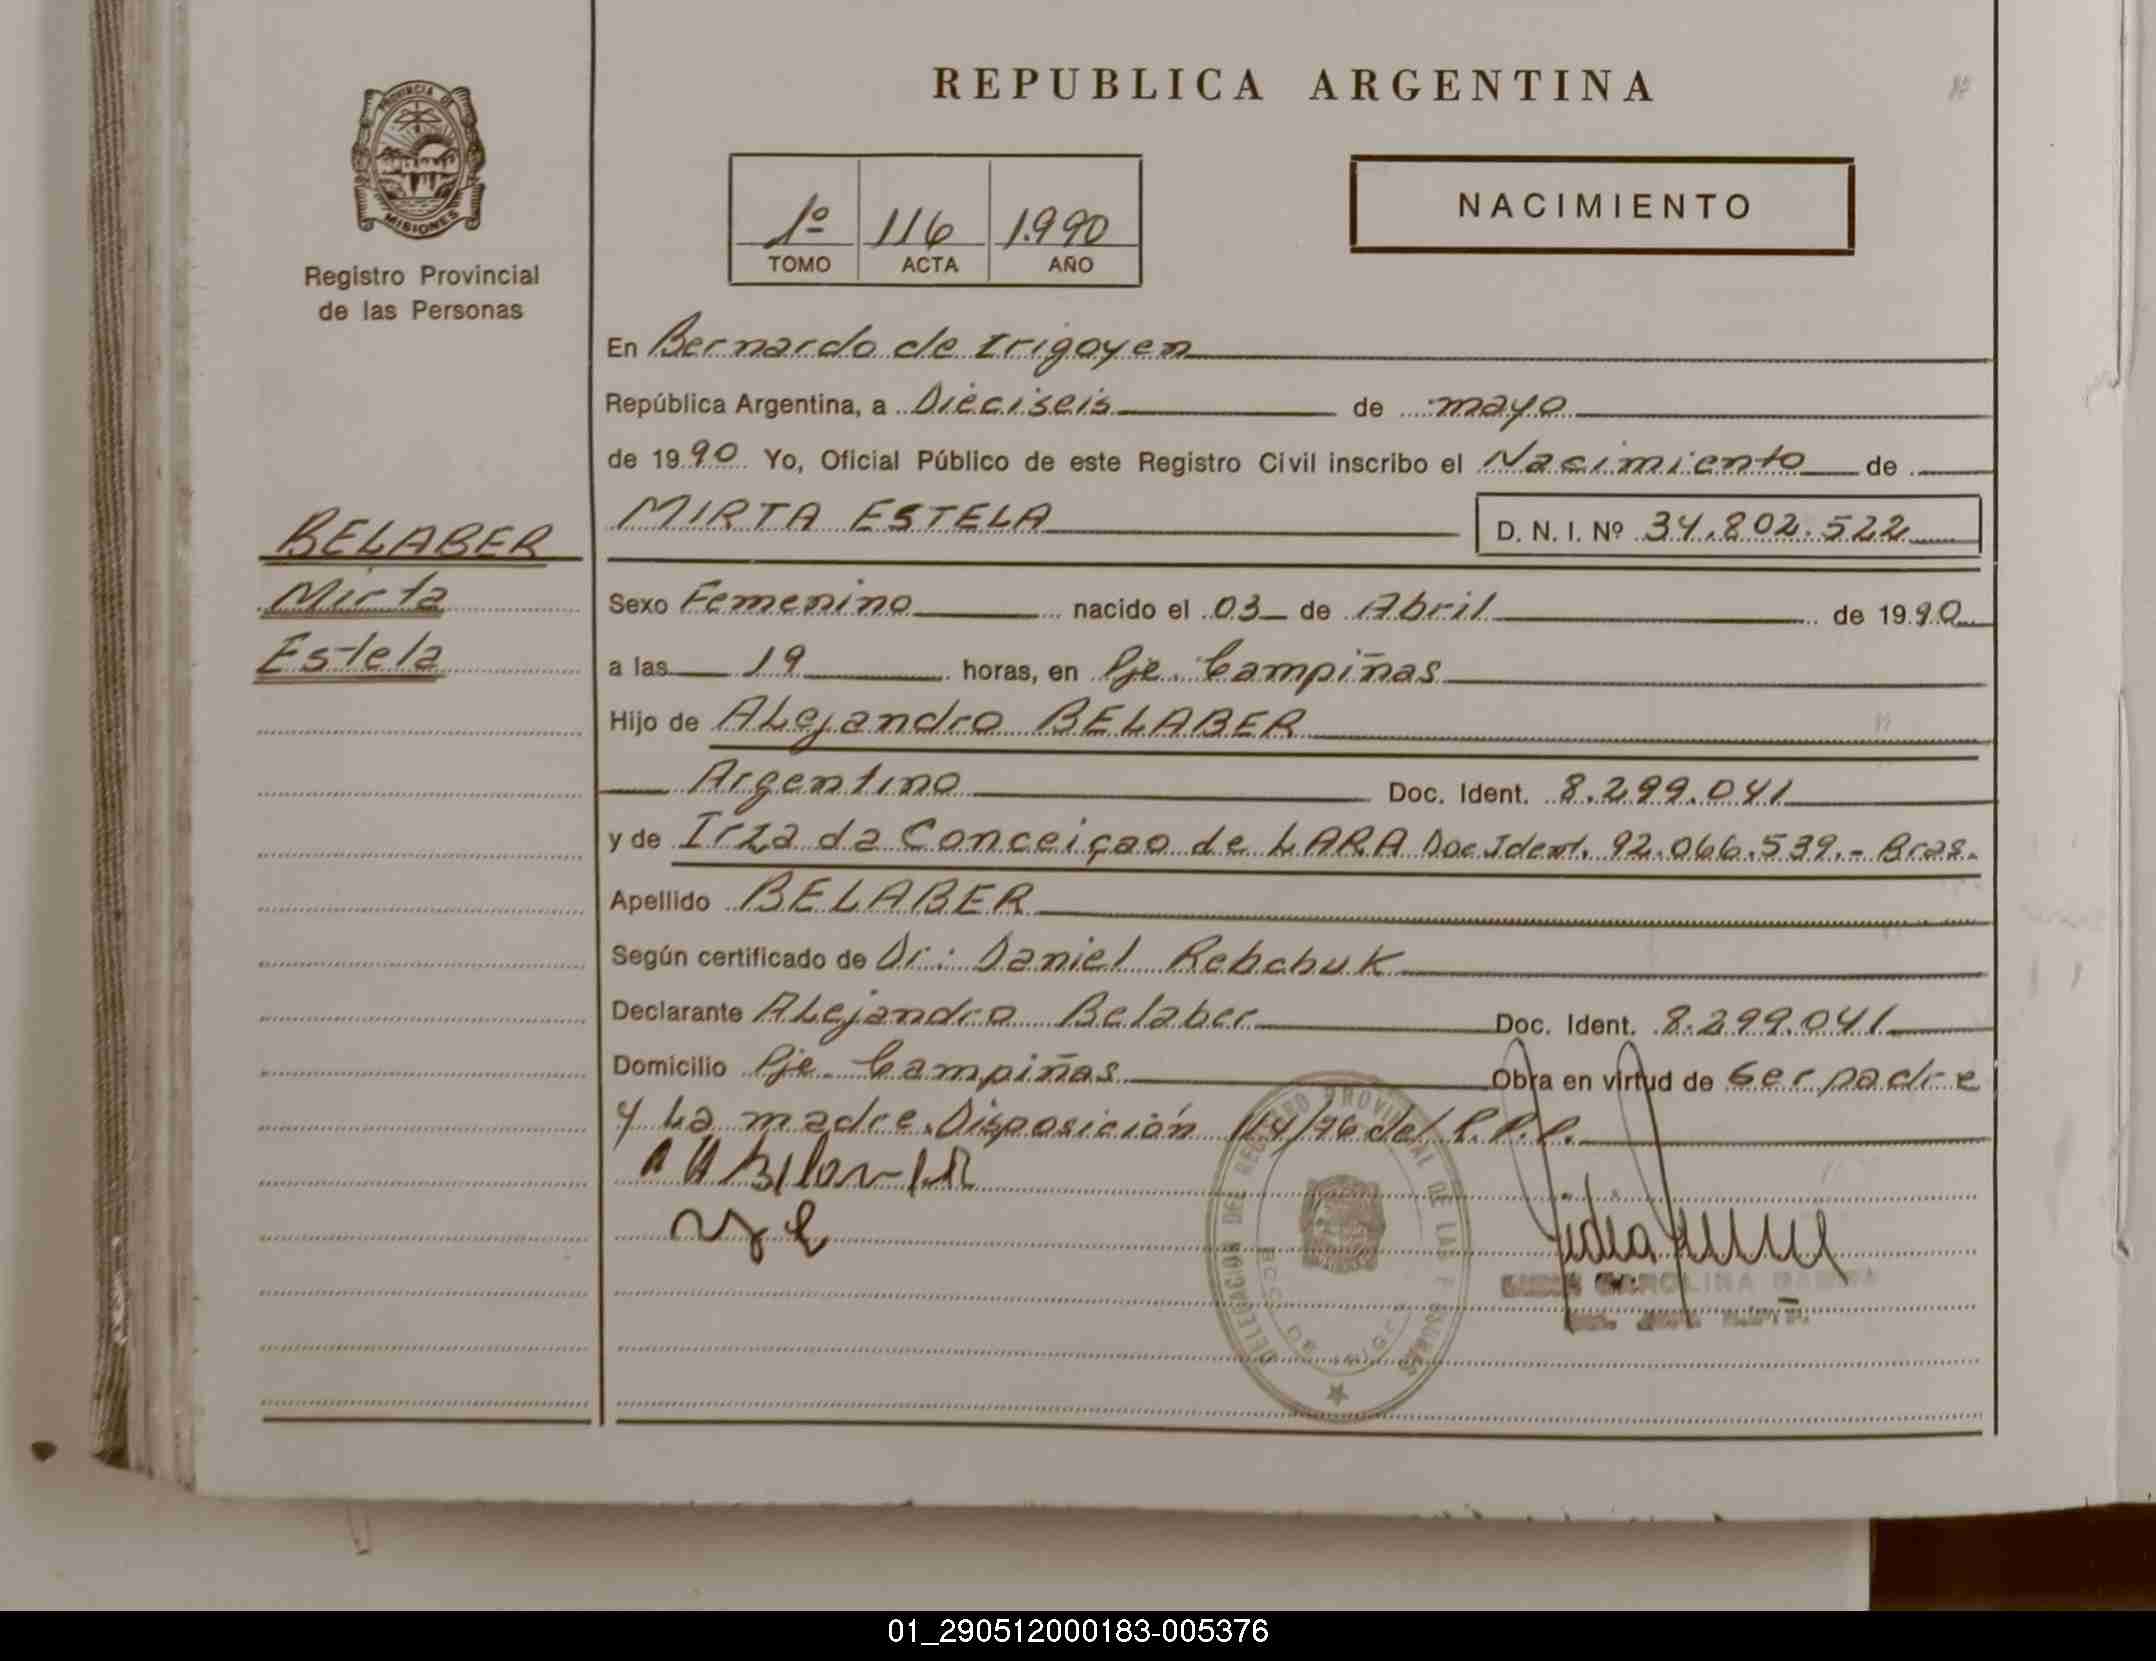 REPUBLICA ARGENTINA
PROVINCIA DE MISIONES
Registro Provincial
de las Personas
1º 116 1.990
TOMO ACTA AÑO
NACIMIENTO
En Bernardo de Irigoyen
República Argentina, a Dieciseis de mayo
de 1990 Yo, Oficial Público de este Registro Civil inscribo el Nacimiento de
BELABER
Mirta
Estela
MIRTA ESTELA D. N. I. Nº 34.802.522
Sexo Femenino nacido el 03 de Abril de 1990
a las 19 horas, en Pje. Campiñas
Hijo de ALejandro BELABER
Argentino Doc. Ident. 8.299.041
y de Irza da Conceiçao de LARA Doc Ident. 92.066.539.- Bras.
Apellido BELABER
Según certificado de Dr: Daniel Rebchuk
Declarante ALejandro Belaber Doc. Ident. 8.299.041
Domicilio Pje. Campiñas Obra en virtud de ser padre
y La madre. Disposición 114/76 del R.P.P.
DELEGACION DEL REGISTRO PROVINCIAL DE LAS
CAROLINA
01_290512000183-005376